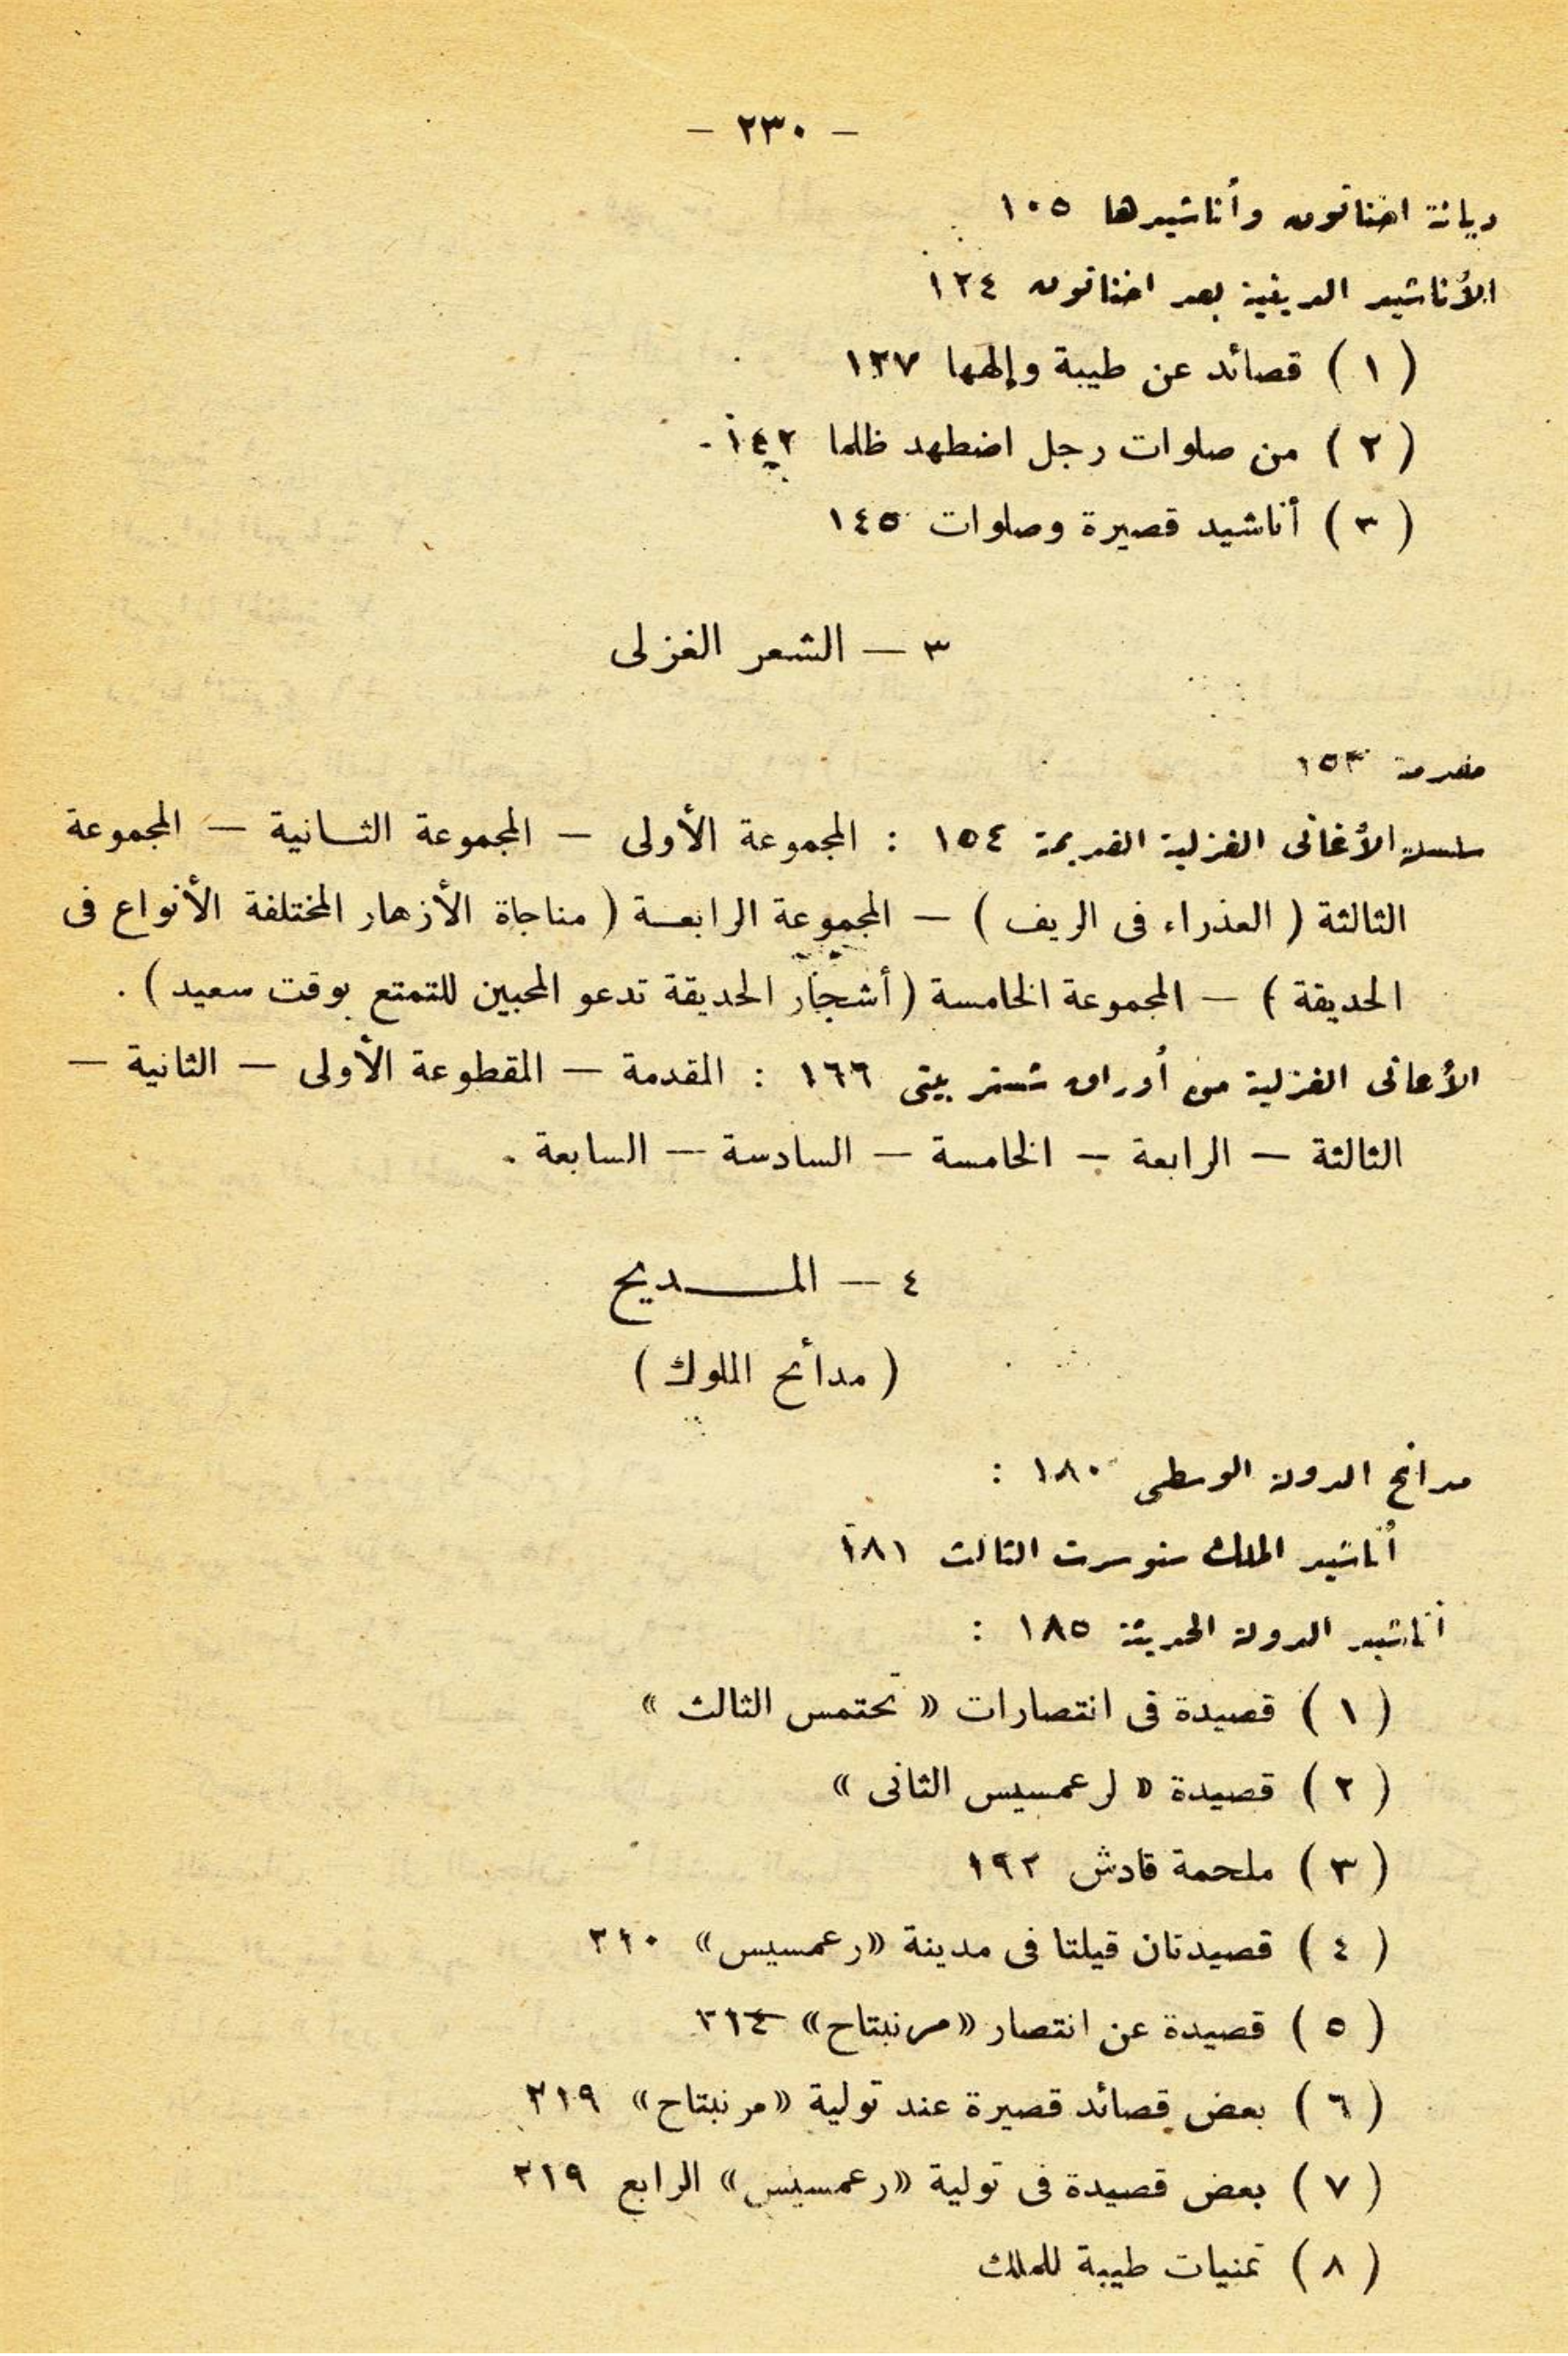 – ٢٣٠ –
ديانة اخناتون وأناشيدها ١٠٥
الأناشيد الدينية بعد اخناتون ١٢٤
( ١ ) قصائد عن طيبة وإلهها ١٣٧
( ٢ ) من صلوات رجل اضطهد ظلما ١٤٢
( ٣ ) أناشيد قصيرة وصلوات ١٤٥
٣ – الشعر الغزلى
مقدمة ١٥٣
سلسلة الأغانى الغزلية القديمة ١٥٤ : المجموعة الأولى – المجموعة الثانية – المجموعة
الثالثة ( العذراء فى الريف ) – المجموعة الرابعة ( مناجاة الأزهار المختلفة الأنواع فى
الحديقة ) – المجموعة الخامسة ( أشجار الحديقة تدعو المحبين للتمتع بوقت سعيد ) .
الأغانى الغزلية من أوراق شستر بيتى ١٦٦ : المقدمة – المقطوعة الأولى – الثانية –
الثالثة – الرابعة – الخامسة – السادسة – السابعة .
٤ – المـديح
( مدائح الملوك )
مدائح الدولة الوسطى ١٨٠ :
أناشيد الملك سنوسرت الثالث ١٨١
أناشيد الدولة الحديثة ١٨٥ :
( ١ ) قصيدة فى انتصارات « تحتمس الثالث »
( ٢ ) قصيدة « لرعمسيس الثانى »
( ٣ ) ملحمة قادش ١٩٢
( ٤ ) قصيدتان قيلتا فى مدينة «رعمسيس» ٢١٠
( ٥ ) قصيدة عن انتصار «مرنبتاح» ٢١٤
( ٦ ) بعض قصائد قصيرة عند تولية «مرنبتاح» ٢١٩
( ٧ ) بعض قصيدة فى تولية «رعمسيس» الرابع ٢١٩
( ٨ ) تمنيات طيبة للملك